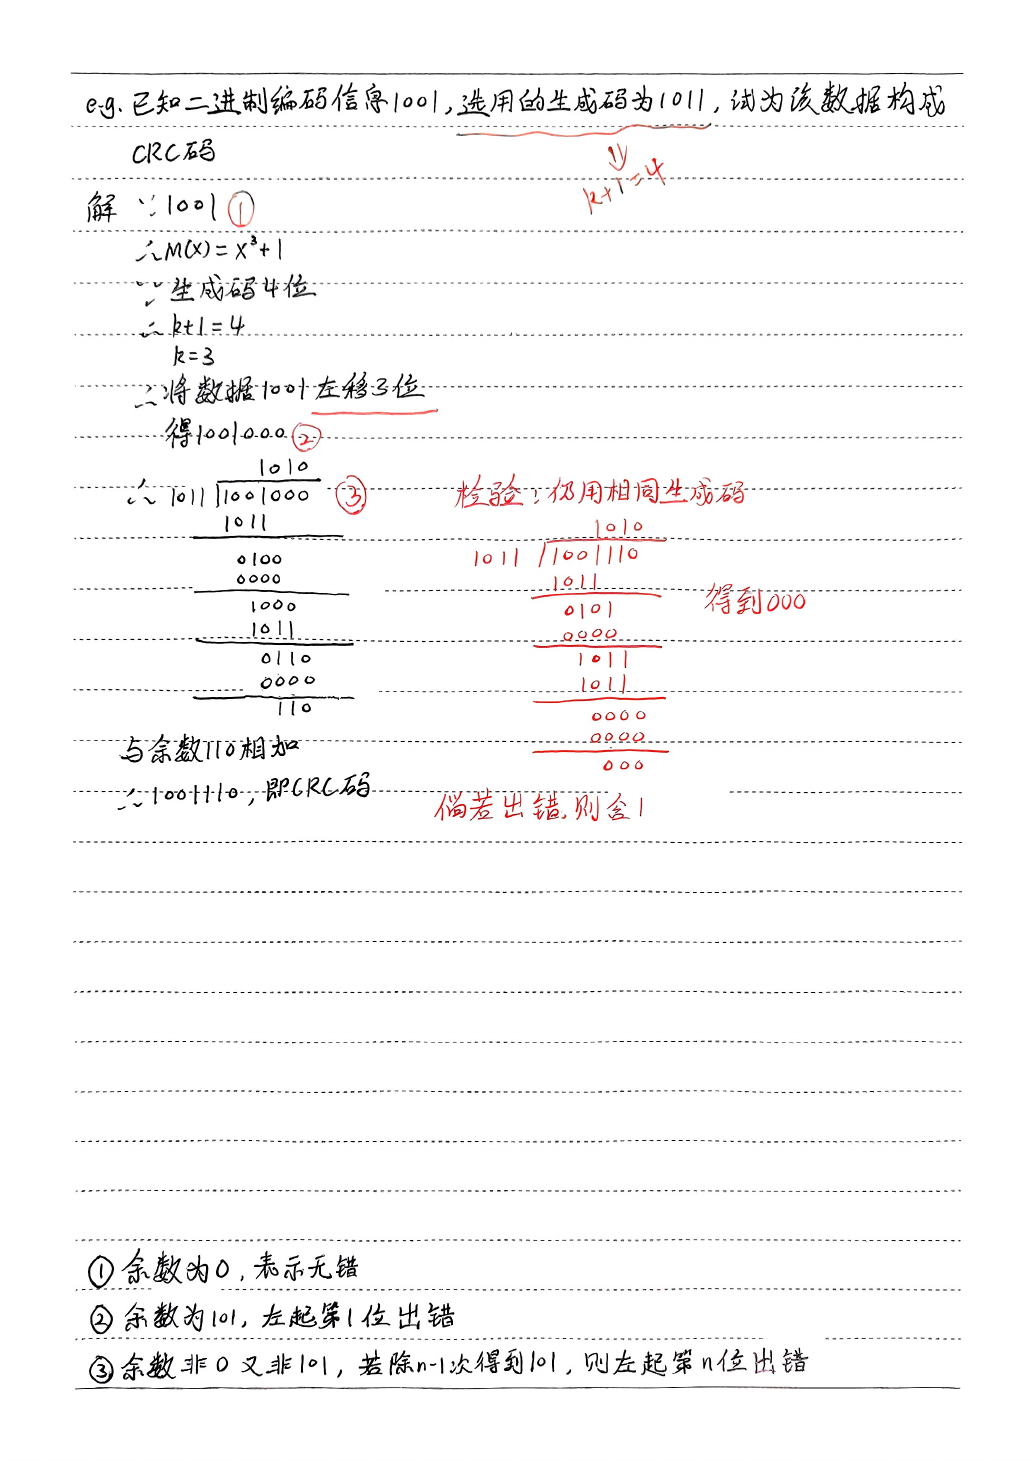 e.g. 已知二进制编码信息1001，选用的生成码为1011，试为该数据构成
CRC码
⇓
k+1=4
解 ∵1001 ①
∴M(X)=X³+1
∵生成码4位
∴k+1=4
k=3
∴将数据1001左移3位
得1001000 ②
1010
∴ 1011 1001000 ③
1011
0100
0000
1000
1011
0110
0000
110
与余数110相加
∴1001110，即CRC码
检验：仍用相同生成码
1010
1011 1001110
1011
0101
0000
1011
1011
0000
0000
000
得到000
倘若出错，则含1
①余数为0，表示无错
②余数为101，左起第1位出错
③余数非0又非101，若除n-1次得到101，则左起第n位出错